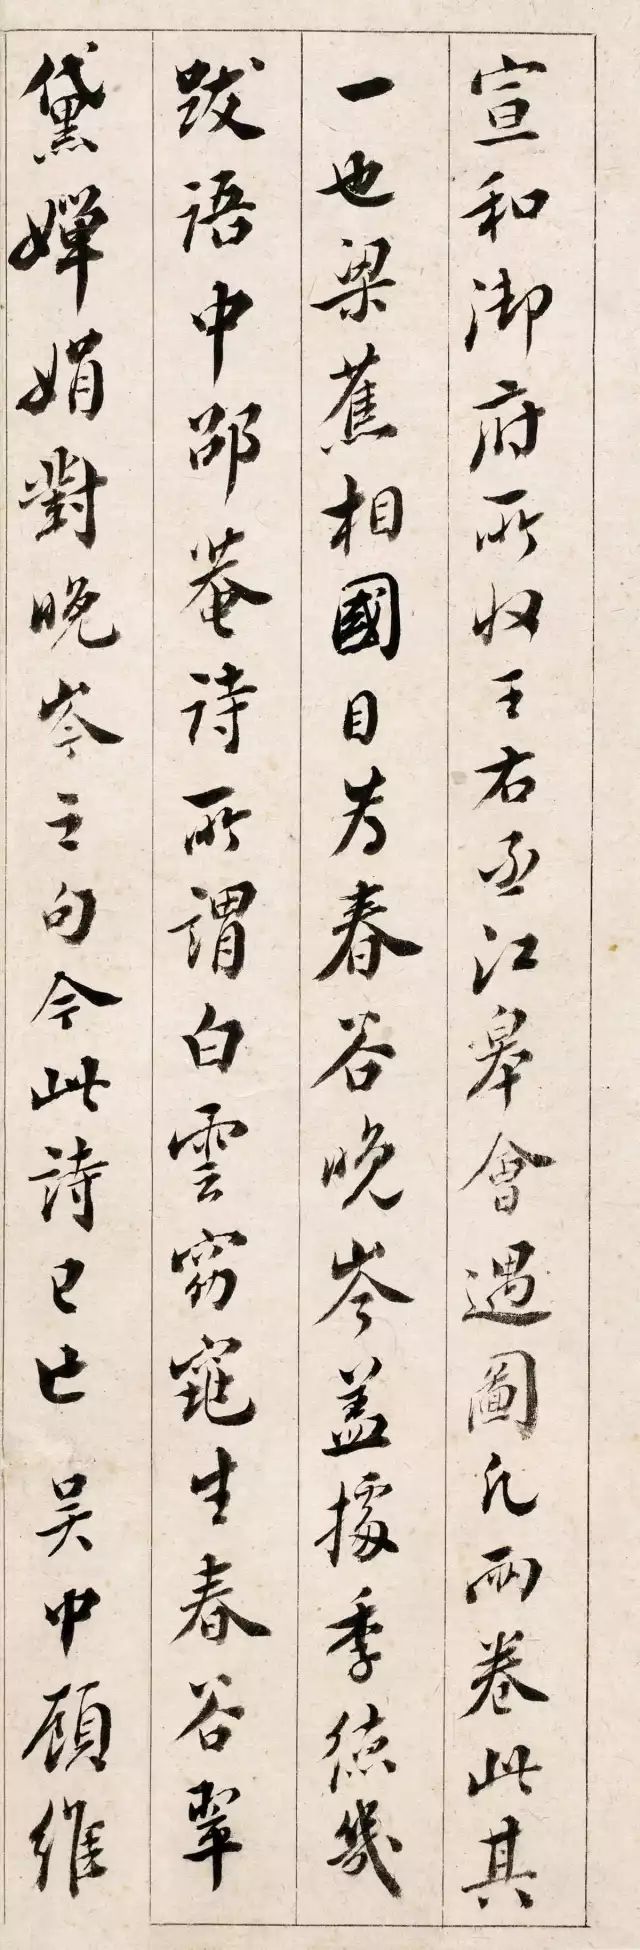 宣和御府所收王右丞江皋會遇圖凡兩卷此其
一也梁蕉相國目为春谷晚岑盖據季德幾
跋语中邵菴诗所謂白雲窈窕生春谷翠
黛嬋娟對晚岑之句今此詩已亡吴中顾維